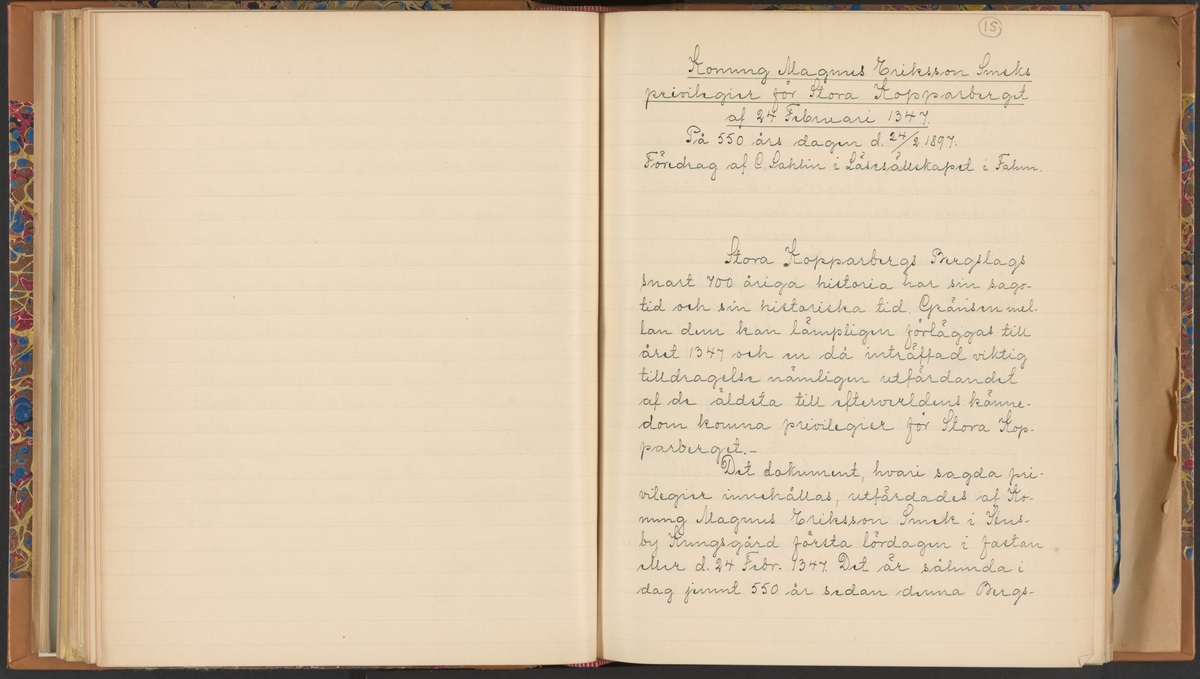 15
Konung Magnus Eriksson Smeks
privilegier för Stora Kopparberget
af 24 Februari 1347.
På 550 års dagen d. 24/2 1897.
Föredrag af C. Sahlin i Läsesällskapet i Falun.
Stora Kopparbergs Bergslags
snart 700 åriga historia har sin sago-
tid och sin historiska tid. Gränsen mel-
lan dem kan lämpligen förläggas till
året 1347 och en då inträffad viktig
tilldragelse nämligen utfärdandet
af de äldsta till efterverldens känne-
dom komna privilegier för Stora Kop-
parberget.-
Det dokument, hvari sagda pri-
vilegier innehållas, utfärdades af Ko-
nung Magnus Eriksson Smek i Hus-
by Kungsgård första lördagen i fastan
eller d. 24 Febr. 1347. Det är sålunda i
dag jemnt 550 år sedan denna Bergs-